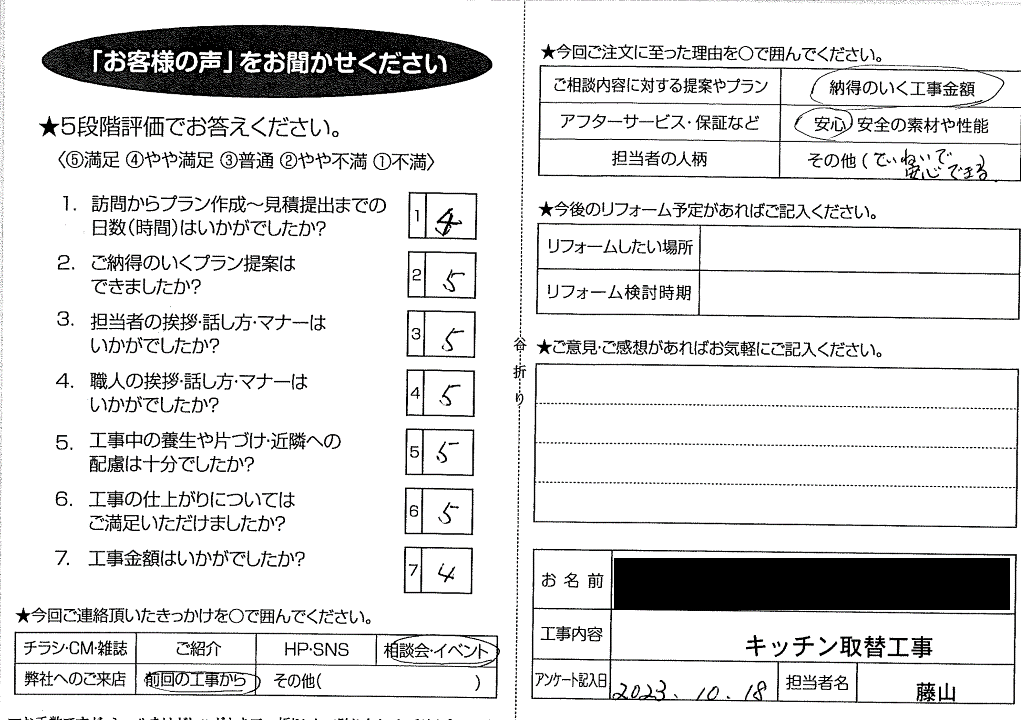 「お客様の声」をお聞かせください
★5段階評価でお答えください。
〈⑤満足 ④やや満足 ③普通 ②やや不満 ①不満〉
1. 訪問からプラン作成～見積提出までの
日数(時間)はいかがでしたか?
1 4
2. ご納得のいくプラン提案は
できましたか?
2 5
3. 担当者の挨拶・話し方・マナーは
いかがでしたか?
3 5
4. 職人の挨拶・話し方・マナーは
いかがでしたか?
4 5
5. 工事中の養生や片づけ・近隣への
配慮は十分でしたか?
5 5
6. 工事の仕上がりについては
ご満足いただけましたか?
6 5
7. 工事金額はいかがでしたか?
7 4
★今回ご連絡頂いたきっかけを○で囲んでください。
チラシ・CM・雑誌 ご紹介 HP・SNS 相談会・イベント
弊社へのご来店 前回の工事から その他( )
谷折り
★今回ご注文に至った理由を○で囲んでください。
ご相談内容に対する提案やプラン 納得のいく工事金額
アフターサービス・保証など 安心・安全の素材や性能
担当者の人柄 その他(ていねいで
安心できる)
★今後のリフォーム予定があればご記入ください。
リフォームしたい場所
リフォーム検討時期
★ご意見・ご感想があればお気軽にご記入ください。
お名前
工事内容 キッチン取替工事
アンケート記入日 2023.10.18 担当者名 藤山